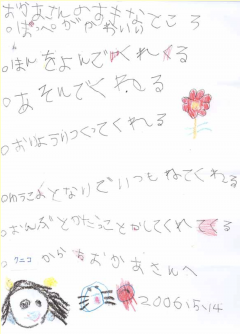 おかあさんのすきなところ
○ほっぺがかわいい
○ほんをよんでくれる
○あそんでくれる
○おりょうりつくってくれる
○よこのとなりでいつもねてくれる
○おんぶとかだっことかしてくれる
クニコからおかあさんへ
2006.5.14